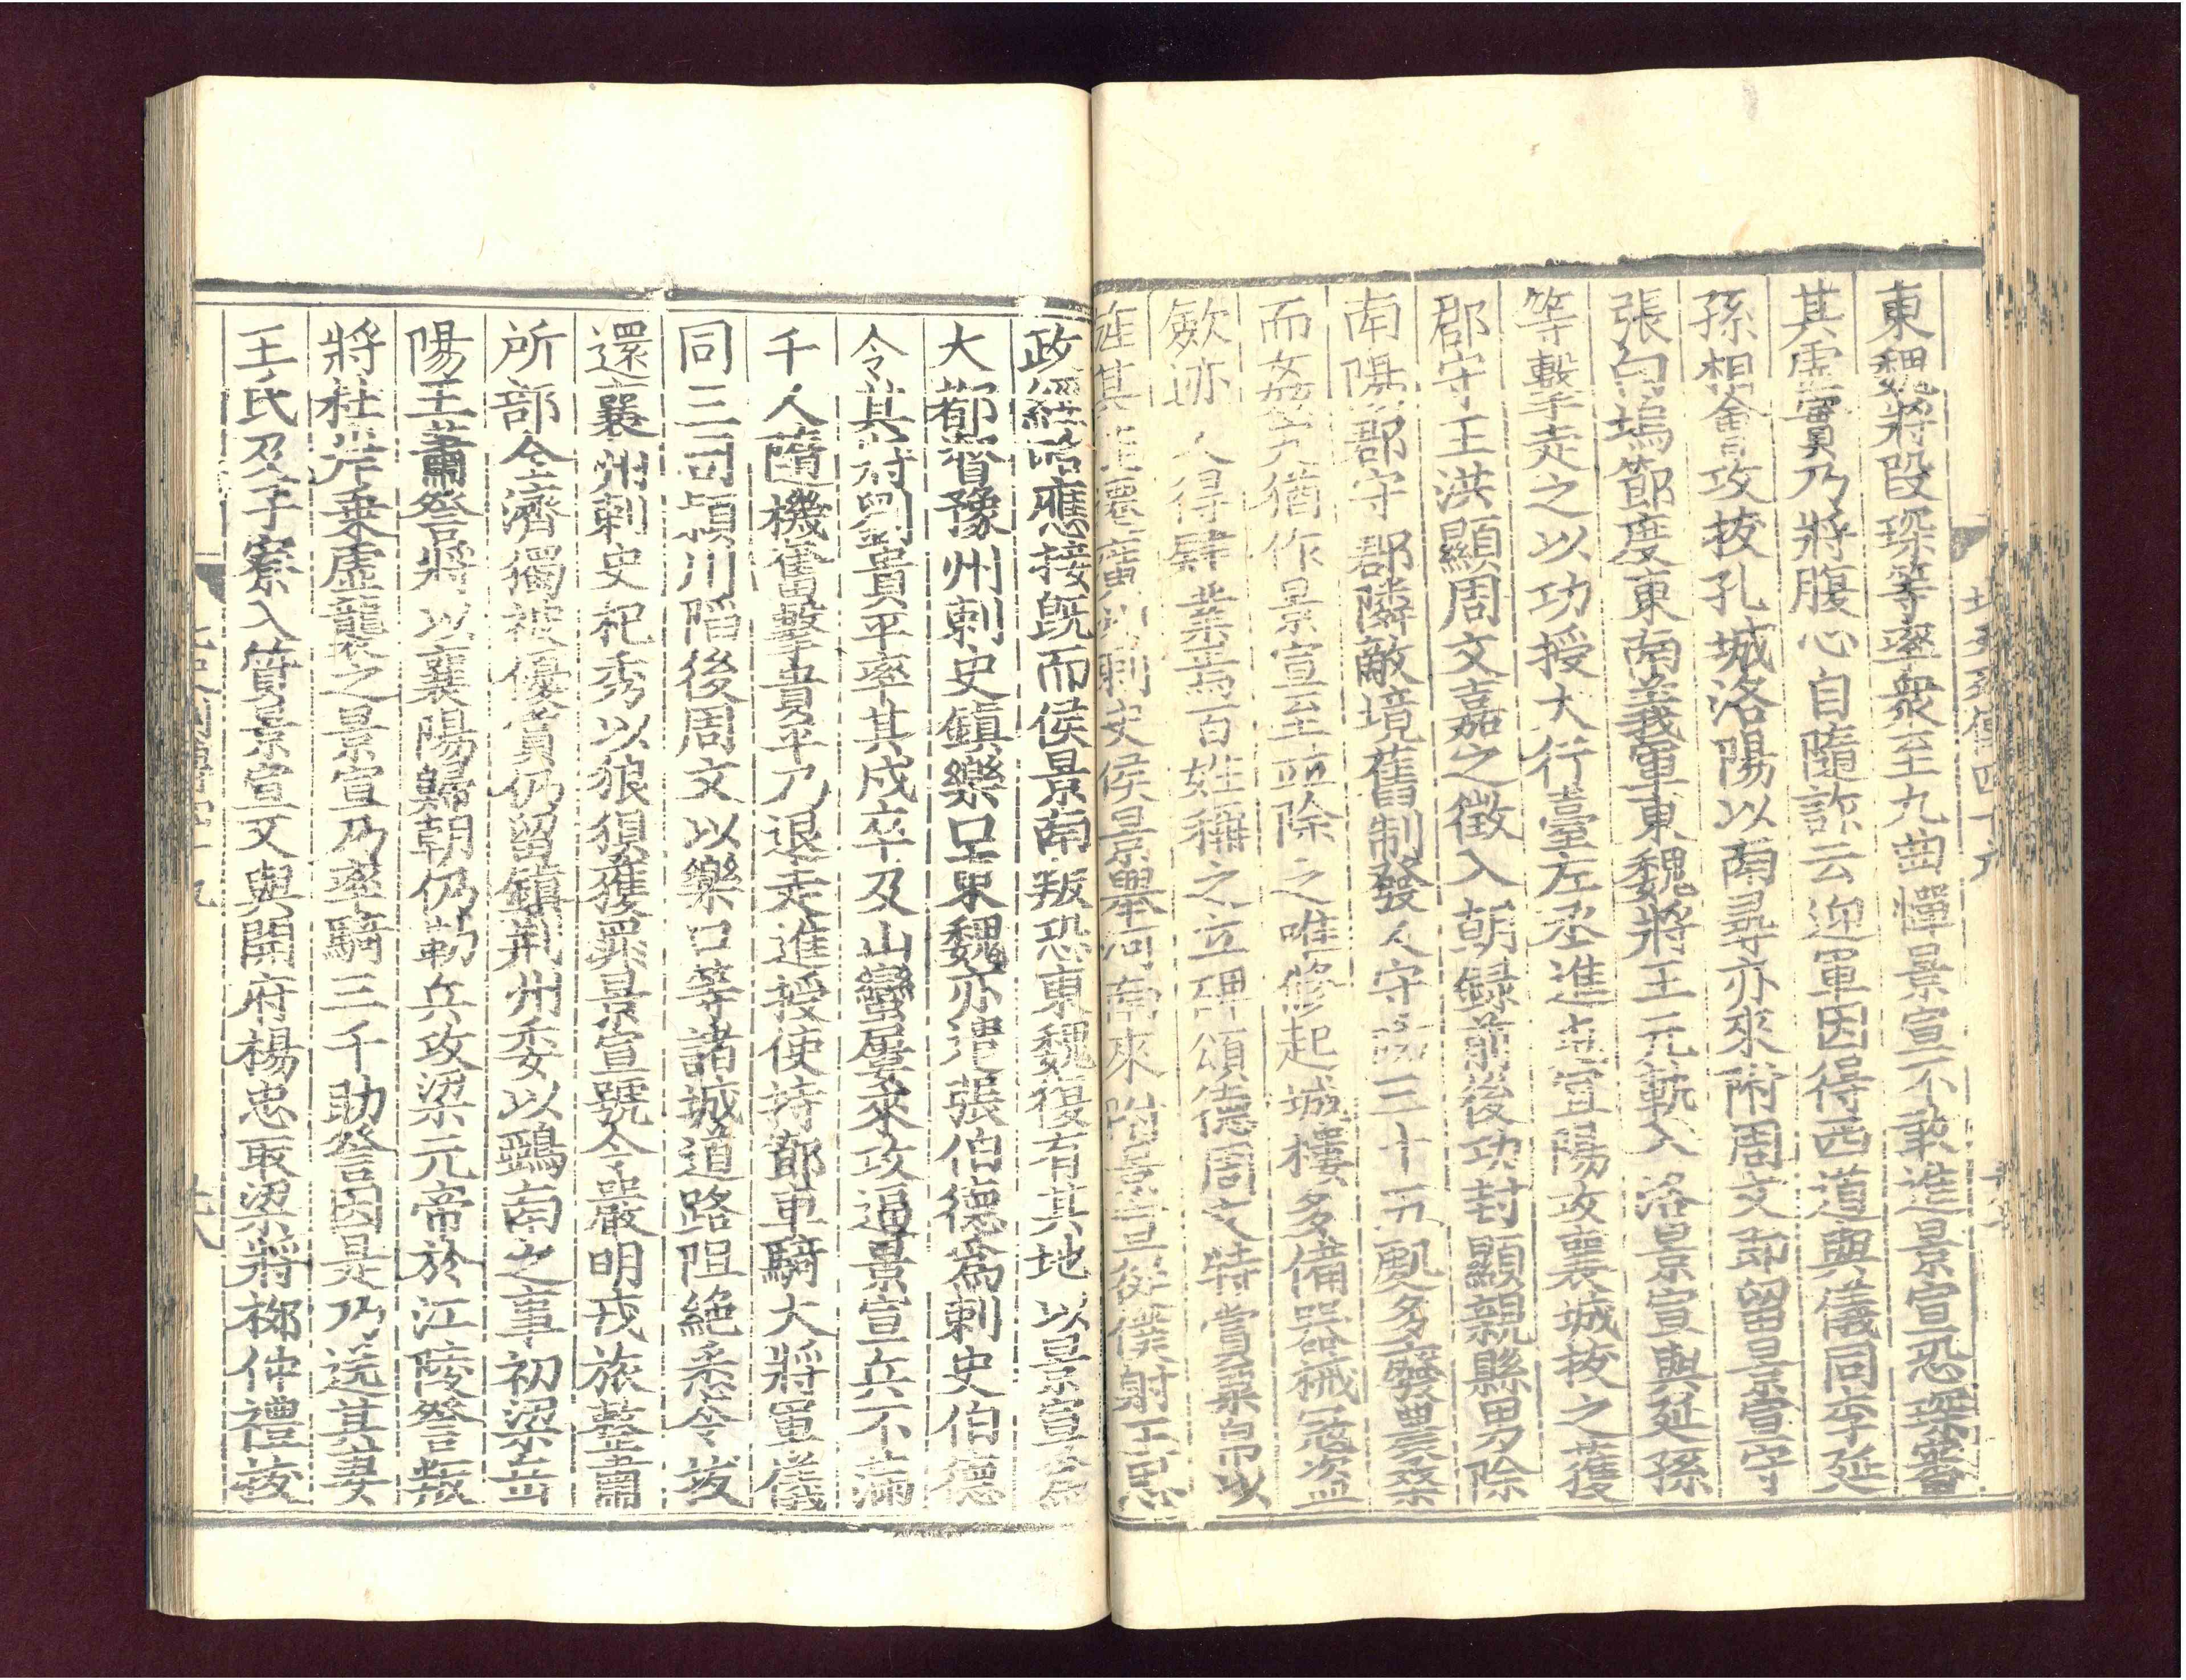 東魏將段琛等率衆至九曲憚景宣不敢進景宣恐琛審
其虛實乃將腹心自隨詐云迎軍因得西道與儀同李延
孫相會攻拔孔城洛陽以南尋亦來附周文即留景宣守
張白塢節度東南義軍東魏將王元軌入洛景宣與延孫
等擊走之以功授大行臺左丞進屯宜陽攻襄城拔之獲
郡守王洪顯周文嘉之徵入朝録前後功封顯親縣男除
南陽郡守郡隣敵境舊制發人守防三十五處多廢農桑
而姦宄猶作景宣至並除之唯修起城樓多備器械寇盜
斂迹人得肄業百姓稱之立碑頌德周文特賞粟帛以
旌其能遷廣州刺史侯景舉河南來附景宣從僕射王思
政經略應接旣而侯景南叛恐東魏復有其地以景宣爲
大都督豫州刺史鎮樂口東魏亦遣張伯德爲刺史伯德
令其將劉貴平率其戍卒及山蠻屢來攻逼景宣兵不滿
千人隨機奮擊貴平乃退走進授使持節車騎大將軍儀
同三司潁川陷後周文以樂口等諸城道路阻絶悉令拔
還襄州刺史杞秀以狼狽獲罪景宣號令嚴明戎旅整肅
所部全濟獨被優賞仍留鎮荆州委以鵶南之事初梁岳
陽王蕭詧將以襄陽歸朝仍勒兵攻梁元帝於江陵詧叛
將杜岸乗虛襲之景宣乃率騎三千助詧因是乃送其妻
王氏及子寮入質景宣又與開府楊忠取梁將柳仲禮拔